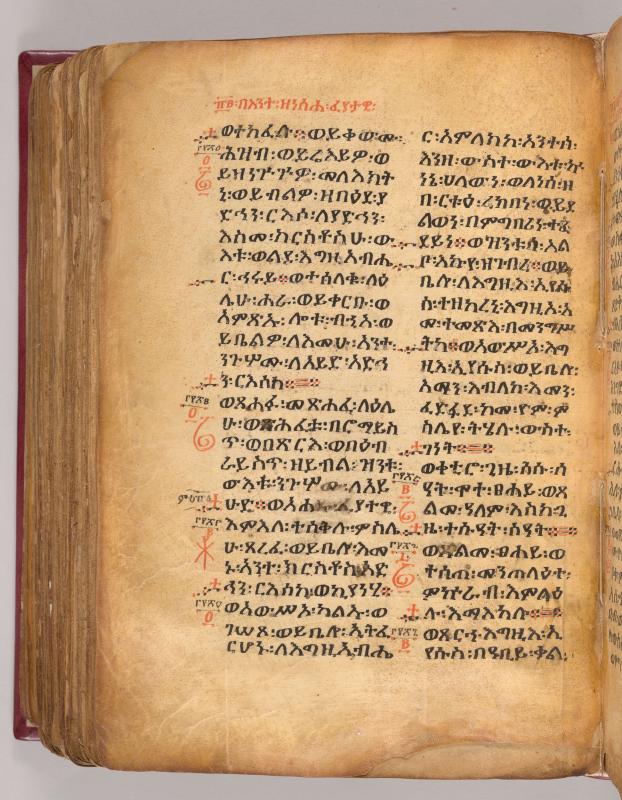 ፹፪፡በእንተ፡ዘነስሐ፡ፈያታዊ፡
ወተካፈሉ፡፡ወይቀውሙ፡
ሕዝብ፡ወይሬእይዎ፡ወ
ይዘንጕጕዎ፡መላእክት
ኒ፡ወይብልዎ፡ዘባዕደ፡ያ
ድኅን፡ርእሶ፡ለያድኅን፡
እስመ፡ክርስቶስሁ፡ው
እቱ፡ወልደ፡እግዚአብሔ
ር፡ኅሩይ፨ወተሳለቁ፡ላዕ
ሌሁ፡ሐራ፡ወይቀርቡ፡ወ
አምጽኡ፡ሎቱ፡ብኂአ፡ወ
ይቤልዎ፡ለእመሁ፡አንተ፡
ንጉሦሙ፡ለአይሁድ፡አድኅ
ን፡ርእሰከ፨
ወጸሐፉ፡መጽሐፈ፡ላዕሌ
ሁ፡ወጽሕፈቱ፡በሮማይስ
ጥ፡ወበጽርእ፡ወበዕብ
ራይስጥ፡ዘይብል፡ዝንቱ፡
ውእቱ፡ንጉሦሙ፡ለአይ
ሁድ፨ወአሐዱ፡ፈያታዊ፡
እምእለ፡ተሰቅሉ፡ምስሌ
ሁ፡ጸረፈ፡ወይቤሎ፡እመ
ኑ፡አንተ፡ክርስቶስ፡አድ
ኅን፡ርእሰከ፡ወኪያነሂ፨
ወአውሥአ፡ካልኡ፡ወ
ገሠጾ፡ወይቤሎ፡ኢትፈ
ርሆኑ፡ለእግዚአብሔ
ር፡አምላክከ፡አንተሰ፡
እንዘ፡ውስተ፡ውእቱ፡ኵ
ነኔ፡ሀላውን፡ወለነሰ፡ዘ
በ፡ርቱዕ፡ረከበነ፡ወይደ
ልወነ፡በምግባሪነ፡ተፈ
ደይነ፨ወዝንቱሰ፡አል
ቦ፡እኩየ፡ዘገብረ፨ወይ
ቤሎ፡ለእግዚእ፡ኢየሱ
ስ፡ተዘከረኒ፡እግዚእ፡አ
መ፡ተመጽእ፡በመንግሥ
ትከ፨ወአውሥአ፡እግ
ዚእ፡ኢየሱስ፡ወይቤሎ፡
አማን፡እብለከ፡እመን፡
ፈድፋደ፡ከመ፡ዮም፡ም
ስሌየ፡ትሄሉ፡ውስተ፡
ገነት፨
ወቀቲሮ፡ጊዜ፡ስሱ፡ሰ
ዓት፡ሞተ፡ፀሐይ፡ወጸ
ልመ፡ዓለም፡እስከ፡ጊ
ዜ፡ተሱዓት፡ሰዓት፨
ወጸልመ፡ፀሐይ፡ወ
ተሰጠ፡መንጠላዕተ፡
ምኵራብ፡እምላዕ
ሉ፡እማእከሉ፨
ወጸርኀ፡እግዚእ፡ኢ
የሱስ፡በዓቢይ፡ቃል፡